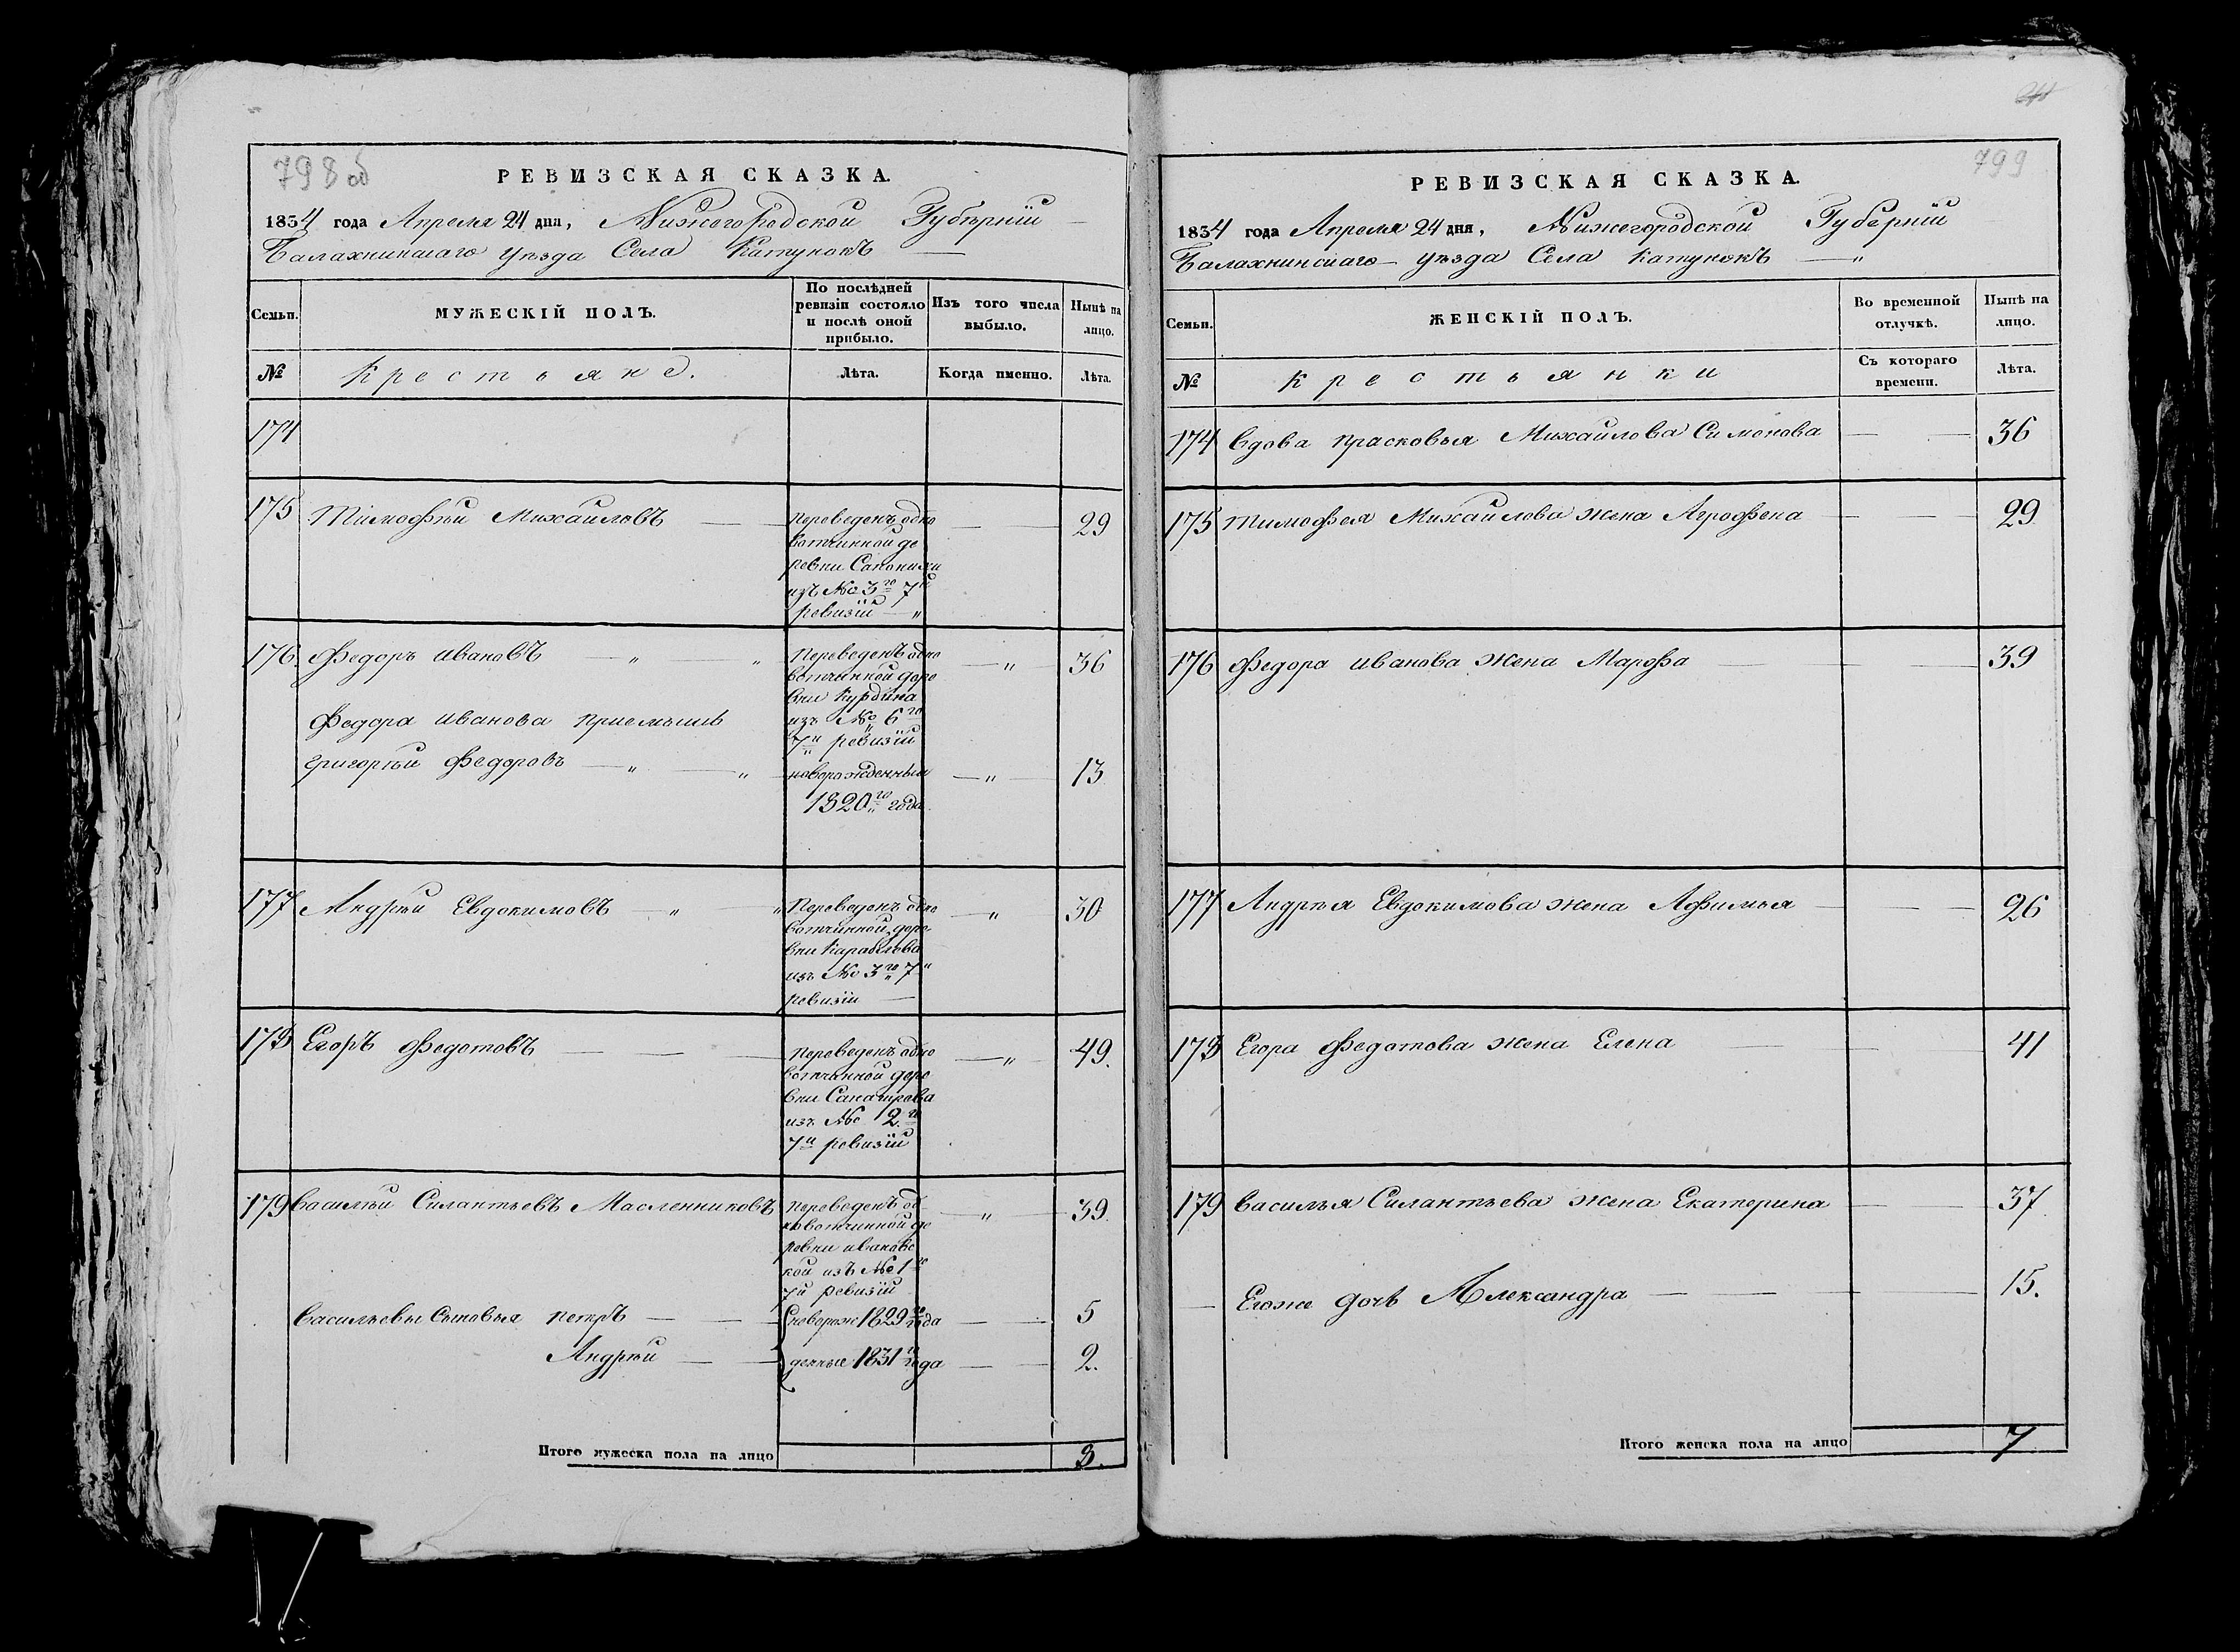 798 об
РЕВИЗСКАЯ СКАЗКА.
1834 года Апреля 24 дня, Нижегородской Губѣрнiи
Балахнинскаго уѣзда Села Катунокъ
Семьи.
МУЖЕСКІЙ ПОЛЪ.
По послѣдней ревизіи состояло и послѣ оной прибыло.
Изъ того числа выбыло.
Нынѣ на лицо.
№
Крестьяне.
Лѣта.
Когда именно.
Лѣта.
174
175 Тимофѣй Михайловъ
Переведенъ одно
вотчинной де
ревни Сапонихи
изъ № 3го 7й
ревизіи
29
176. Федоръ Ивановъ
Переведенъ одно
вотчинной дере
вни Курдина
изъ № 6го
7й ревизіи
36
Федора Иванова приемышъ
Григорѣй Федоровъ
новорожденный
1820го года
13
177 Андрѣй Евдокимовъ
Переведенъ одно
вотчинной дере
вни
изъ № 3го 7й
ревизіи
30
178 Егоръ Федотовъ
Переведенъ одно
вотчинной дере
вни
изъ № 2го
7й ревизіи
49.
179 Василѣй Силантьевъ Масленниковъ
Переведенъ од
новотчинной де
ревни ивановс
кой изъ № 1го
7й ревизіи
39.
Васильевы Сыновья Петръ
новорож 1829го года
5
Андрѣй
денные 1831го года
2.
Итого мужеска пола на лицо
8.
799
РЕВИЗСКАЯ СКАЗКА.
1834 года Апреля 24 дня, Нижегородской Губернiи
Балахнинскаго уѣзда Села Катунокъ
Семьи.
ЖЕНСКІЙ ПОЛЪ.
Во временной отлучкѣ.
Нынѣ на лицо.
№
Крестьянки
Съ котораго времени.
Лѣта.
174 Вдова Прасковья Михайлова Симонова 36
175 Тимофея Михайлова жена Агрофена 29
176 Федора Иванова жена Марфа 39
177 Андрѣя Евдокимова жена Афимья 26
178 Егора Федотова жена Елена 41
179 Василья Силантьева жена Екатерина 37
Егоже дочь Александра 15.
Итого женска пола на лицо
7